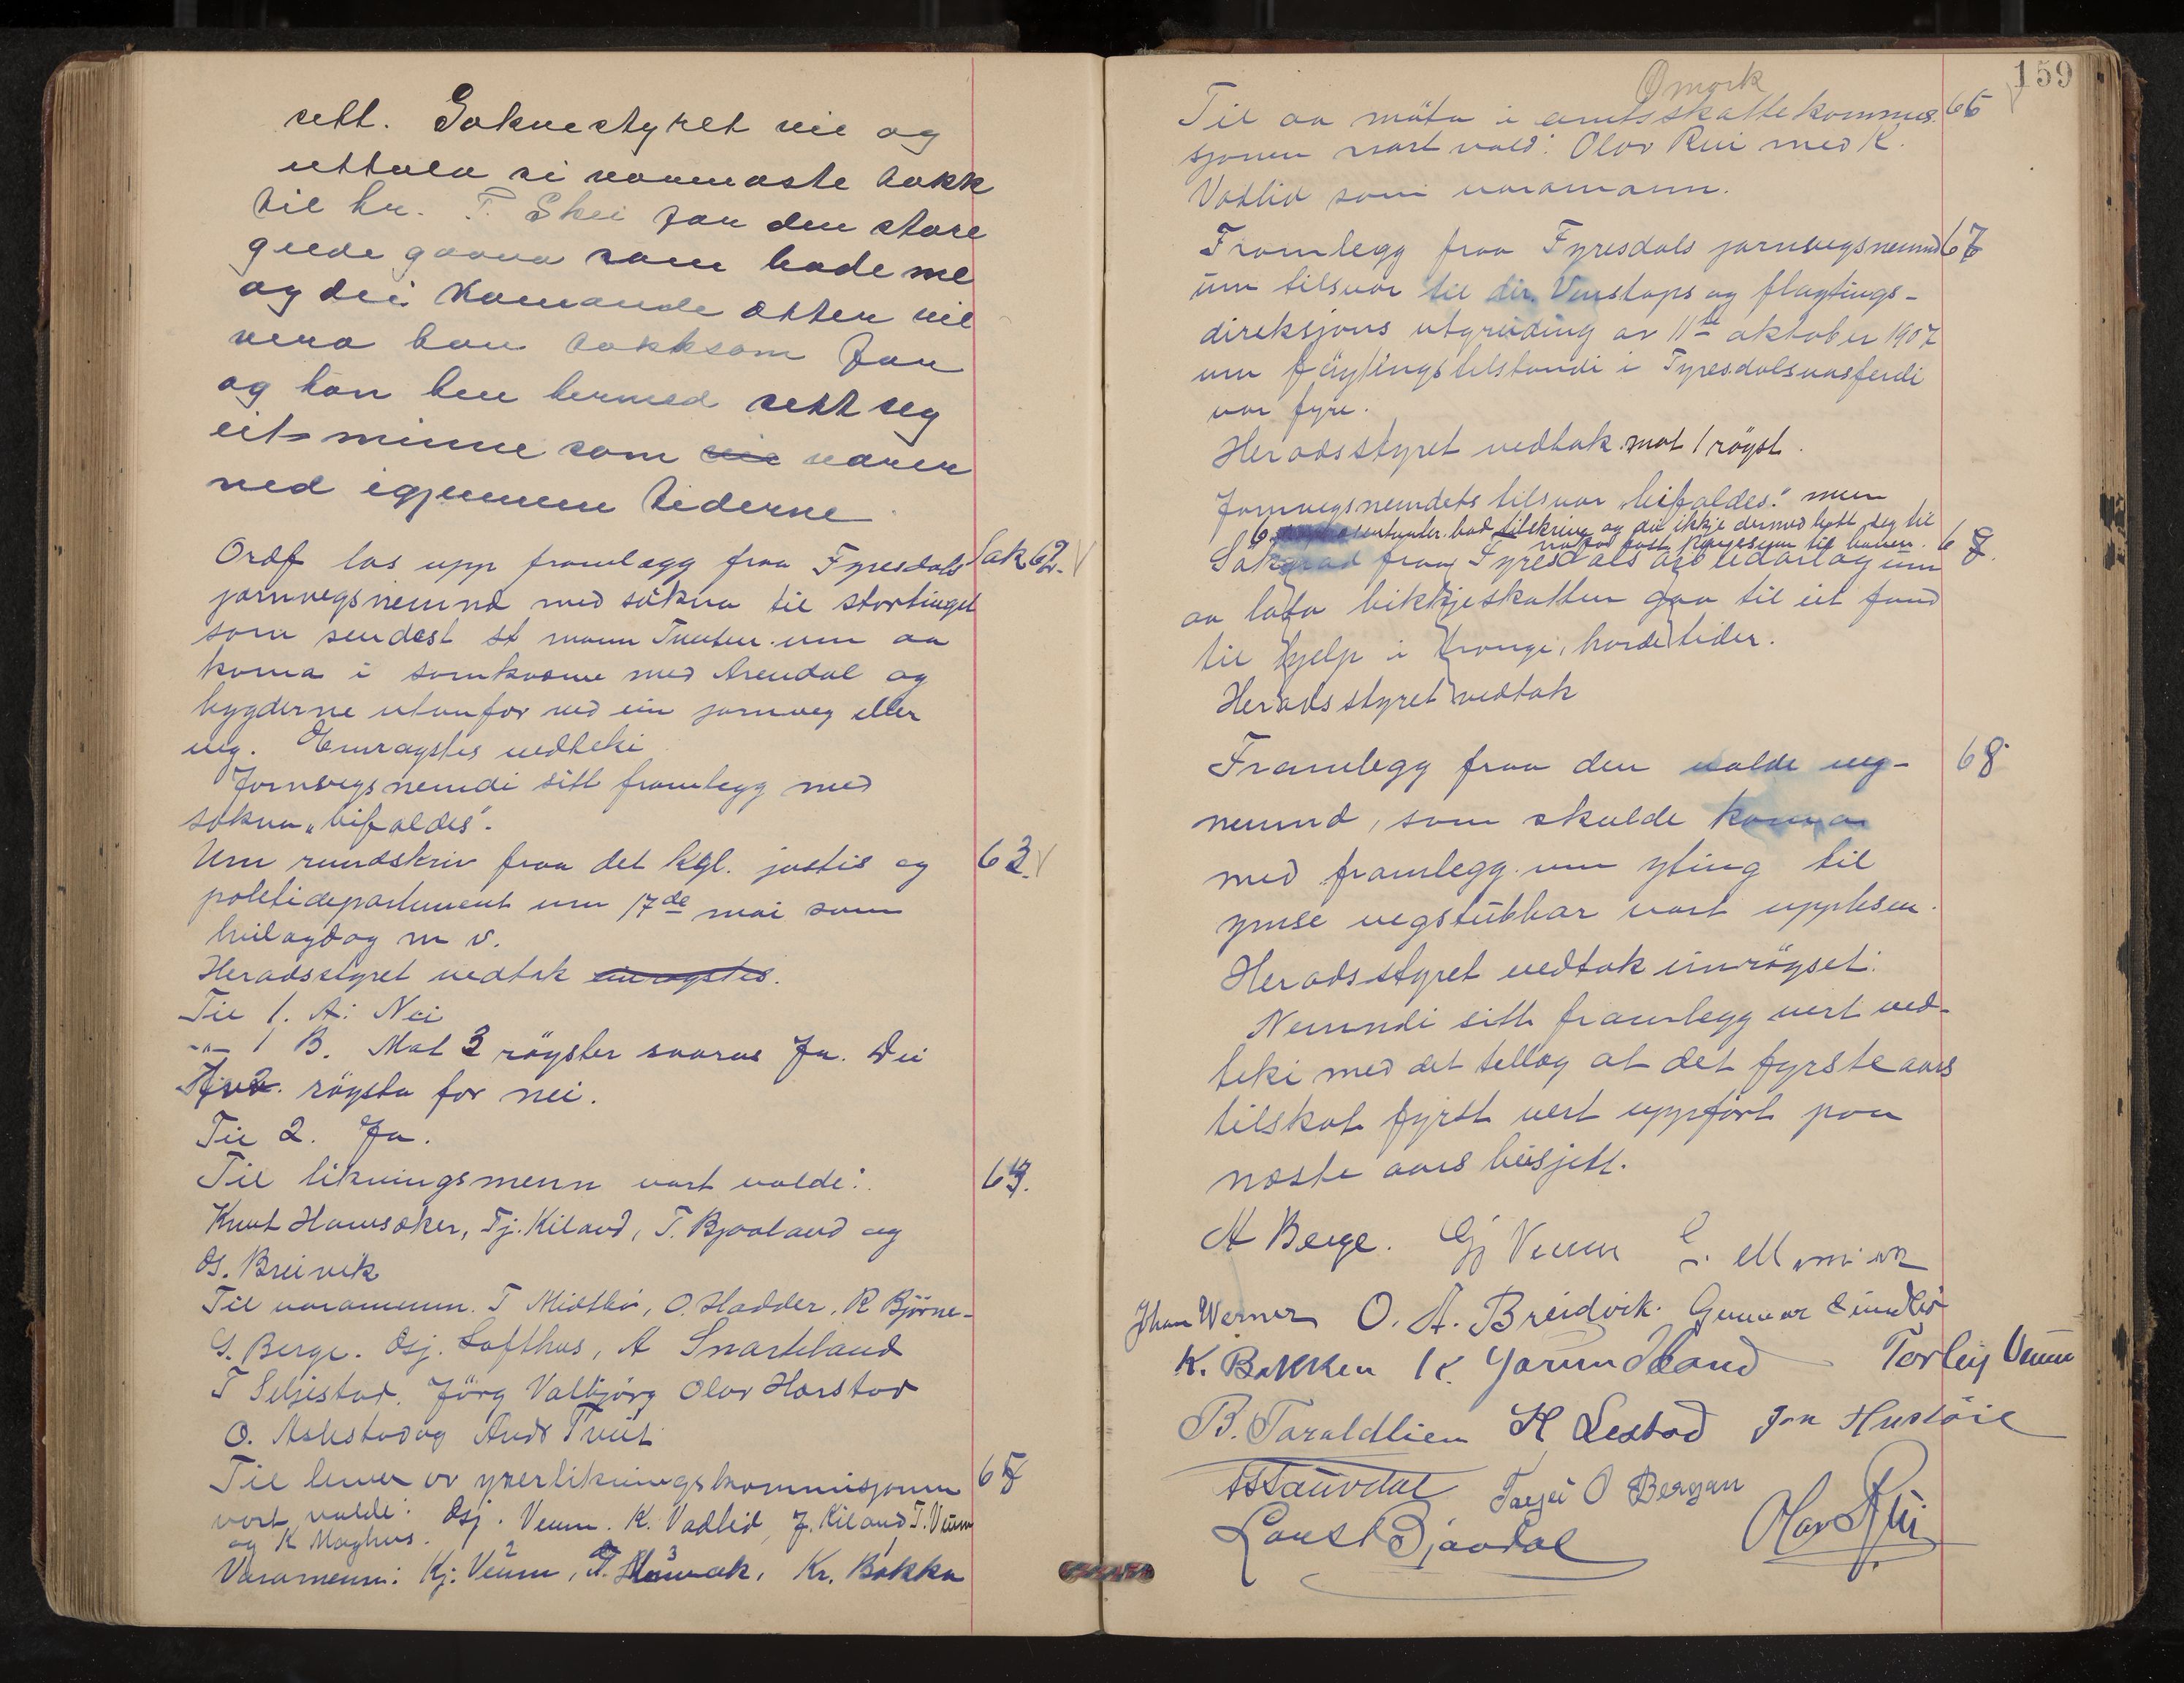 sett. Soknestyret vil og
uttala si varmaste takk
til hr. T. Skei for den store
gilde gaava som bade me
og dei komande ætter vil
vera han takksam for
og han hev hermed sett seg
eit minne som varer
ned igjennem tiderne
Ordf las upp framlegg fraa Fyresdals Sak 62.
jarnvegsnemnd med søkna til stortinget
som sendest st mann Tveiten um aa
koma i samkvæme med Arendal og
bygderne utanfor ved ein jarnveg eller
veg. Einrøystes vedteki
Jarnvegsnemdi sitt framlegg med
søkna „bifaldes".
Um rundskriv fraa det kgl. justis og 63.
politidepartement um 17de mai som
heilagdag m v.
Heradsstyret vedtok einrøystes.
Til 1. A: Nei
-"- 1 B. Mot 3 røyster svaras Ja. Dei
røysta for nei.
Til 2. Ja.
Til likningsmenn vart valde: 64.
Knut Hamsaker, Tj. Kiland, T. Bjaaland og
O. Breivik
Til varamenn. T Midtbø, O. Hadder, R Bjørne-
G. Berge. Osj. Lofthus, A Snarteland
T Seljestad, Jørg Valbjørg Olav Harstad
O. Askestad og Andr Tveit
Til lemer av yverlikningskommisjonen 65
vart valde: Osj. Veum. K. Vadlid, J. Kiland T. Veum
og K Moghus.
Varamenn: Kj. Veum, Kr. Bakka
159
Omork
Til aa møta i amtsskattekommis- 66
sjonen vart vald: Olav Rui med K.
Vadlid som varamann.
Framlegg fraa Fyresdals jarnvegsnemnd 67
um tilsvar til dir. Vinstaps og fløgtings-
direksjons utgreiding av 11te oktober 1907
um fløytingstilstandi i Fyresdalsvasferdi
var fyre.
Heradsstyret vedtok mot 1 røyst.
Jarnvegsnemdets tilsvar „bifaldes." men
bad tilskrive og dei ikkje dermed hatt seg til
Søknad fraa Fyresdals arbeidarlag um 68.
aa lata bikkjeskatten gaa til eit fond
til hjelp i trange, harde tider.
Heradsstyret vedtok
Framlegg fraa den valde veg- 68
nemnd, som skulde koma
med framlegg um yting til
ymse vegstubbar vart upplesen.
Heradsstyret vedtok einrøyset:
Nemndi sitt framlegg vert ved-
teki med det tillæg at det fyrste aars
tilskot fyrst vert uppført paa
næste aars budsjett.
A Berge. Gj Veum
Johan Werner O. A. Breidvik. Gunnar
K. Bakken K. Jarmundland Torleiv Veum
B. Taraldlien K Lestad Jon Hustøil
Tarjei O Bergan
Olav Rui